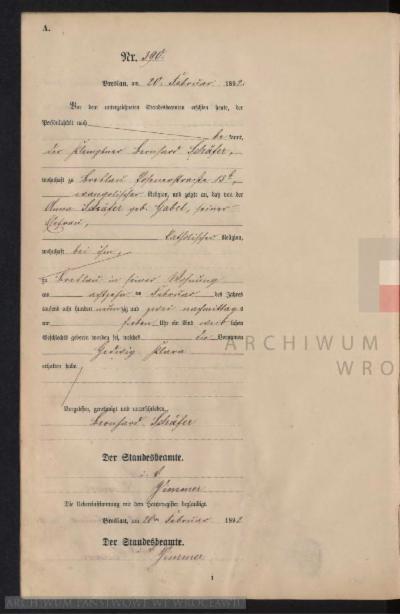 A.
Nr. 390.
Breslau, am 20. Februar 1892.
Vor dem unterzeichneten Standesbeamten erschien heute, der
Persönlichkeit nach
be kannt,
der Klemptner Bernhard Schäfer,
wohnhaft zu Breslau Posenerstraße
evangelischer Religion, und zeigte an, daß von der
Anna Schäfer geb. Gabel, seiner
Ehefrau,
katholischer Religion,
wohnhaft bei ihm,
zu Breslau in seiner Wohnung
am achtzehn ten Februar des Jahres
tausend acht hundert neunzig und zwei nachmittags
um sieben Uhr ein Kind weib lichen
Geschlechts geboren worden sei, welches die Vornamen
Hedwig Klara
erhalten habe.
Vorgelesen, genehmigt und unterschrieben
Bernhard Schäfer
Der Standesbeamte.
Die Uebereinstimmung mit dem Hauptregister beglaubigt.
Breslau, am 20. Februar 1892
Der Standesbeamte.
1
ARCHIWUM
WRO
ARCHIWUM PAŃSTWOWE WE WROCŁAWIU